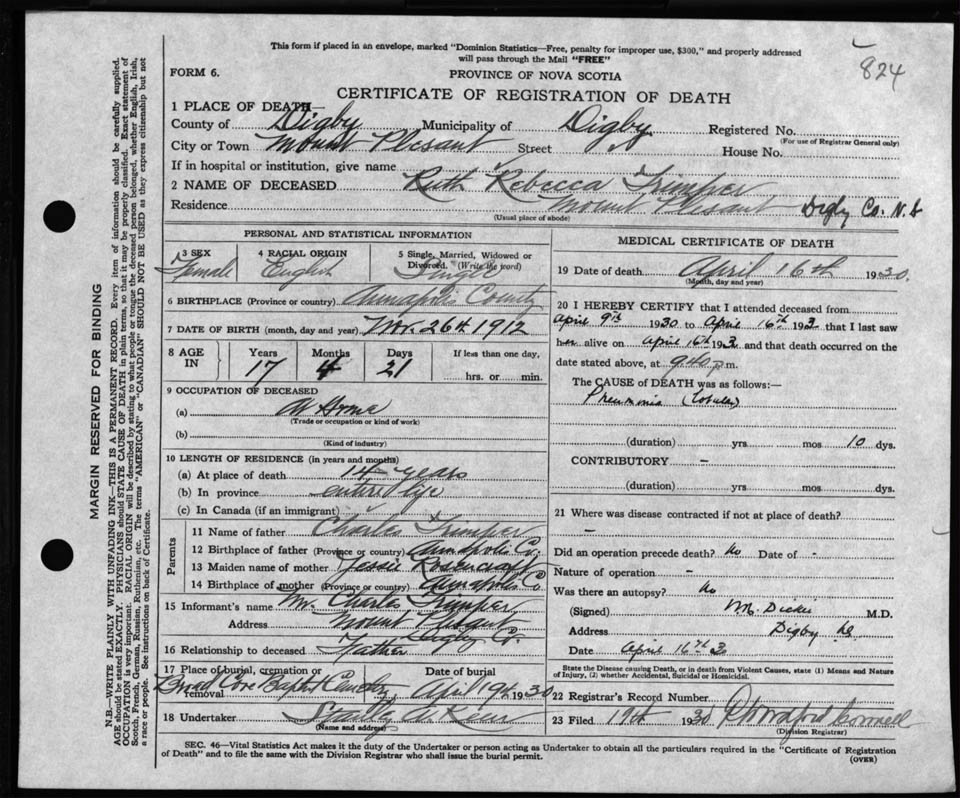 This form if placed in an envelope, marked "Dominion Statistics—Free, penalty for improper use, $300," and properly addressed
will pass through the Mail "FREE"
824
FORM 6.
PROVINCE OF NOVA SCOTIA
CERTIFICATE OF REGISTRATION OF DEATH
1 PLACE OF DEATH—
County of Digby Municipality of Digby Registered No.
(For use of Registrar General only)
City or Town Mount Plesant Street House No.
If in hospital or institution, give name
2 NAME OF DECEASED Ruth Rebecca Trimper
Residence Mount Plesant Digby Co. N.S
(Usual place of abode)
PERSONAL AND STATISTICAL INFORMATION
3 SEX 4 RACIAL ORIGIN 5 Single, Married, Widowed or
Divorced. (Write the word)
Female English Single
6 BIRTHPLACE (Province or country) Annapolis County
7 DATE OF BIRTH (month, day and year) Nov. 26th 1912
8 AGE IN Years Months Days If less than one day,
17 4 21 hrs. or min.
9 OCCUPATION OF DECEASED
(a) At Home
(Trade or occupation or kind of work)
(b)
(Kind of industry)
10 LENGTH OF RESIDENCE (in years and months)
(a) At place of death 14 years
(b) In province entire life
(c) In Canada (if an immigrant)
Parents
11 Name of father Charles Trimper
12 Birthplace of father (Province or country) Annapolis Co.
13 Maiden name of mother Jessie Rosencroft
14 Birthplace of mother (Province or country) Annapolis Co
15 Informant's name Mr. Charles Trimper
Address Mount Plesant
Digby Co.
16 Relationship to deceased Father
17 Place of burial, cremation or removal Date of burial
Broad Cove Baptist Cemetery April 19th 1930
18 Undertaker
(Name and address)
MEDICAL CERTIFICATE OF DEATH
19 Date of death April 16th 1930.
(Month, day and year)
20 I HEREBY CERTIFY that I attended deceased from
April 9th 1930 to April 16th 193 that I last saw
her alive on April 16th 193 and that death occurred on the
date stated above, at 9.40 p.m.
The CAUSE of DEATH was as follows:—
Pneumonia (Lobular)
(duration) yrs mos 10 dys.
CONTRIBUTORY –
(duration) yrs. mos. dys.
21 Where was disease contracted if not at place of death?
–
Did an operation precede death? No Date of -
Nature of operation –
Was there an autopsy? No
(Signed) Dickie M.D.
Address Digby NS
Date April 16th 3
State the Disease causing Death, or in death from Violent Causes, state (1) Means and Nature
of Injury, (2) whether Accidental, Suicidal or Homicidal.
22 Registrar's Record Number
23 Filed 19th 1930
(Division Registrar)
SEC. 46—Vital Statistics Act makes it the duty of the Undertaker or person acting as Undertaker to obtain all the particulars required in the "Certificate of Registration
of Death" and to file the same with the Division Registrar who shall issue the burial permit.
(OVER)
MARGIN RESERVED FOR BINDING
N.B.—WRITE PLAINLY WITH UNFADING INK—THIS IS A PERMANENT RECORD. Every item of information should be carefully supplied.
AGE should be stated EXACTLY. PHYSICIANS should STATE CAUSE OF DEATH in plain terms, so that it may be properly classified. Exact statement of
OCCUPATION is very important. RACIAL ORIGIN will be described by stating to what people or tongue the deceased person belonged, whether English, Irish,
Scotch, French, German, Russian, Ruthenian, etc. The terms "AMERICAN" or "CANADIAN" SHOULD NOT BE USED as they express citizenship but not
a race or people. See instructions on back of Certificate.